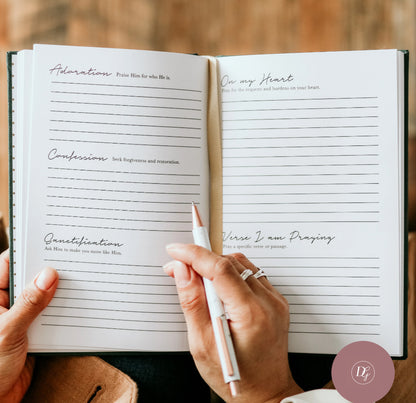 Adoration Praise Him for who He is.
Confession Seek forgiveness and restoration.
Sanctification
Ask Him to make you more like Him.
On my Heart
Pray for the requests and burdens on your heart.
Verse I am Praying
Pray a specific verse or passage.